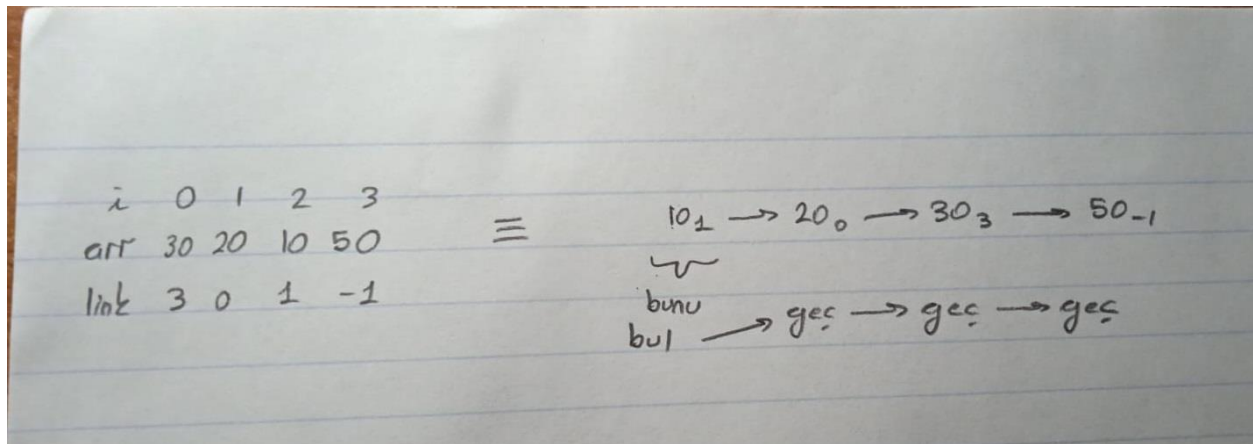 i 0 1 2 3
arr 30 20 10 50
link 3 0 1 -1
≡
10₁ → 20₀ → 30₃ → 50₋₁
bunu
bul → geç → geç → geç